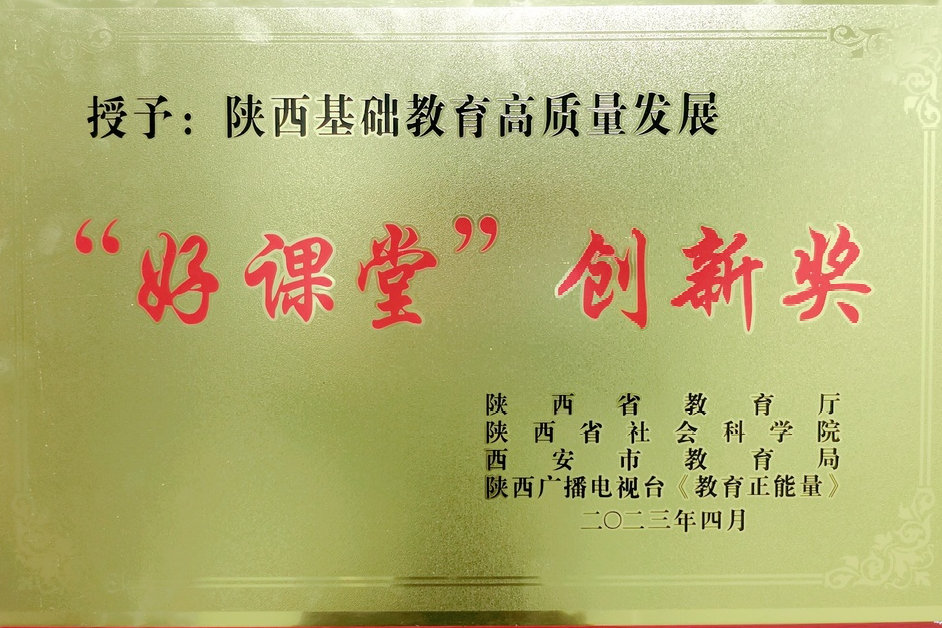 授予：陕西基础教育高质量发展
“好课堂”创新奖
陕西省教育厅
陕西省社会科学院
西安市教育局
陕西广播电视台《教育正能量》
二〇二三年四月